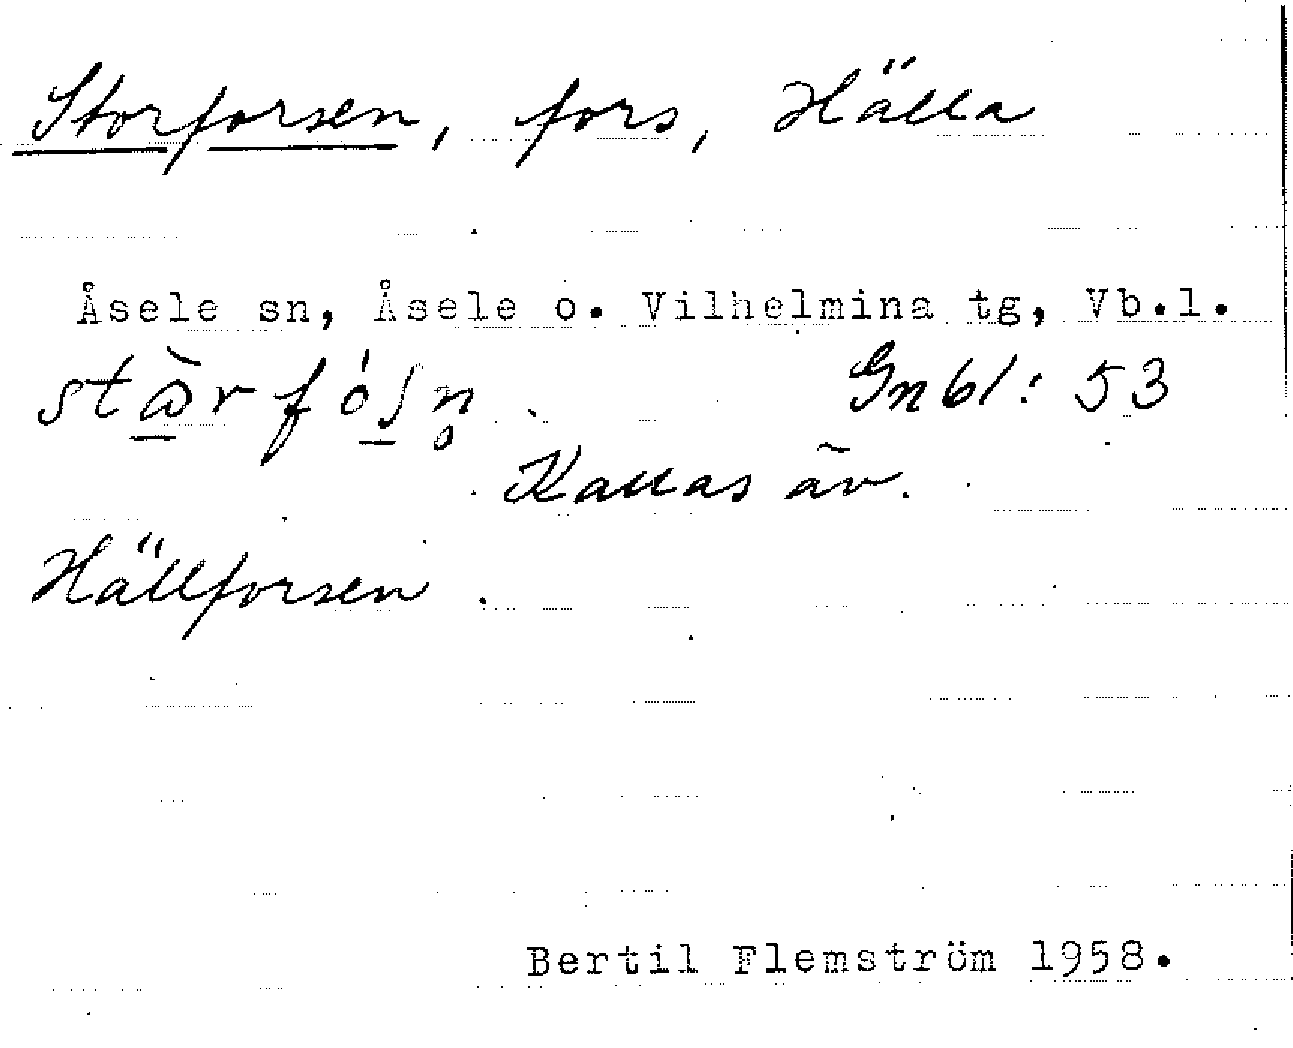 Storforsen, fors, Hälla
Åsele sn, Åsele o. Vilhelmina tg, Vb.l.
Gnbl: 53
Kallas äv.
Hällforsen.
Bertil Flemström 1958.